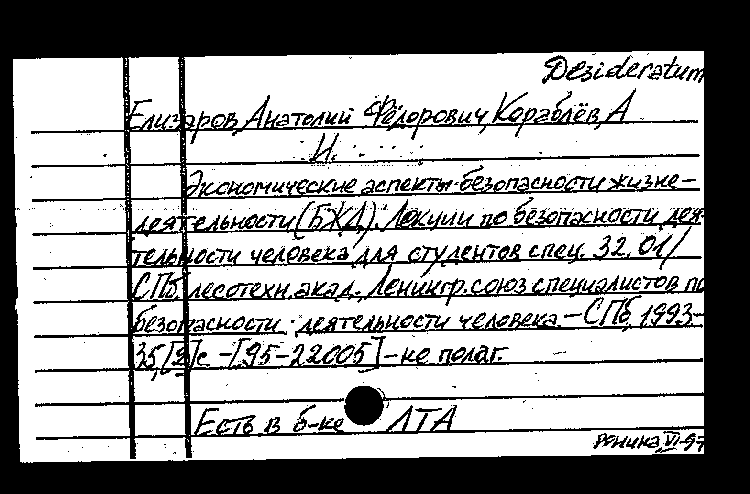 Desideratum
Елизаров, Анатолий Фёдорович, Кораблёв, А
И.
Экономические аспекты безопасности жизне-
деятельности (БЖД): Лекции по безопасности дея-
тельности человека для студентов спец. 32.01/
СПб. лесотехн. акад., Ленингр. союз специалистов по
безопасности деятельности человека. – СПб, 1993. –
35,[2]с. – [95-22005] – не полаг.
Есть в б-ке ЛТА
Ренина VI-97